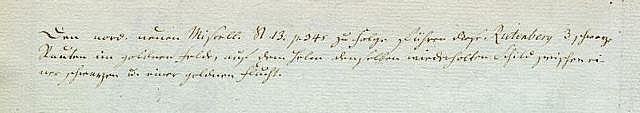 Den nord. neuen Miscell. St 13. p. 345 zu folge führen diese Rutenberg 3 schwarze
Rauten im goldnen Felde, auf dem Helm denselben wiederholten Schild zwischen ei-
ner schwarzen u. einer goldnen Flucht.